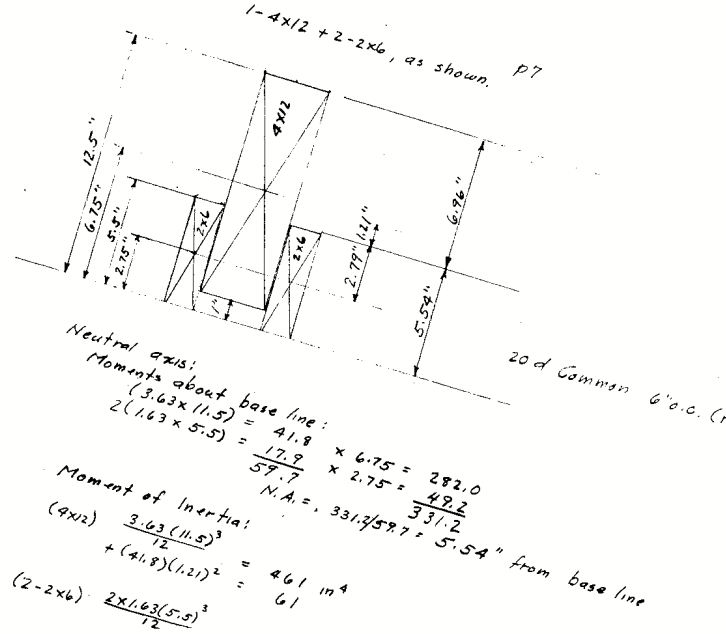 1-4x12 + 2-2x6, as shown. p7
12.5"
6.75"
5.5"
2.75"
2x6
4x12
2x6
1"
1.21"
2.79"
6.96"
5.54"
20d Common 6"o.c. (
Neutral axis:
Moments about base line:
(3.63x11.5) = 41.8 x 6.75 = 282.0
2(1.63 x 5.5) = 17.9 x 2.75 = 49.2
59.7 331.2
N.A. = 331.2/59.7 = 5.54" from base line
Moment of Inertia:
(4x12) 3.63(11.5)³/12 = 461 in⁴
+ (41.8)(1.21)² = 61
(2-2x6) 2x1.63(5.5)³/12